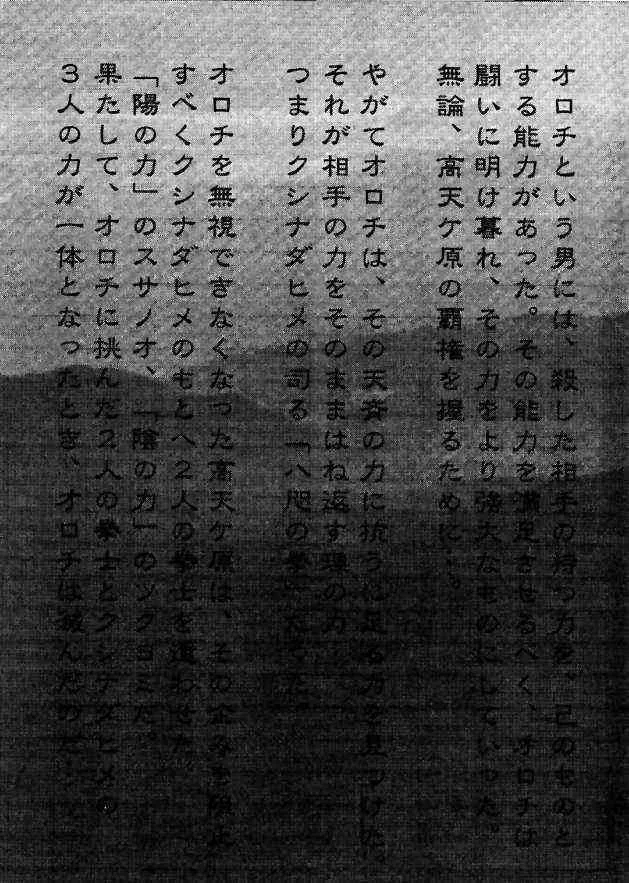 オロチという男には、殺した相手の持つ力を、己のものと
する能力があった。その能力を満足させるべく、オロチは
闘いに明け暮れ、その力をより強大なものにしていった。
無論、高天ケ原の覇権を握るために…。
やがてオロチは、その天 の力に抗うに足る力を見つけた。
それが相手の力をそのままはね返す の力
つまりクシナダヒメの司る「八咫の拳」だった。
オロチを無視できなくなった高天ケ原は、その企みを阻止
すべくクシナダヒメのもとへ2人の拳士を遣わせた。
「陽の力」のスサノオ、「陰の力」のツクヨミだ。
果たして、オロチに挑んだ2人の拳士とクシナダヒメの
3人の力が一体となったとき、オロチは